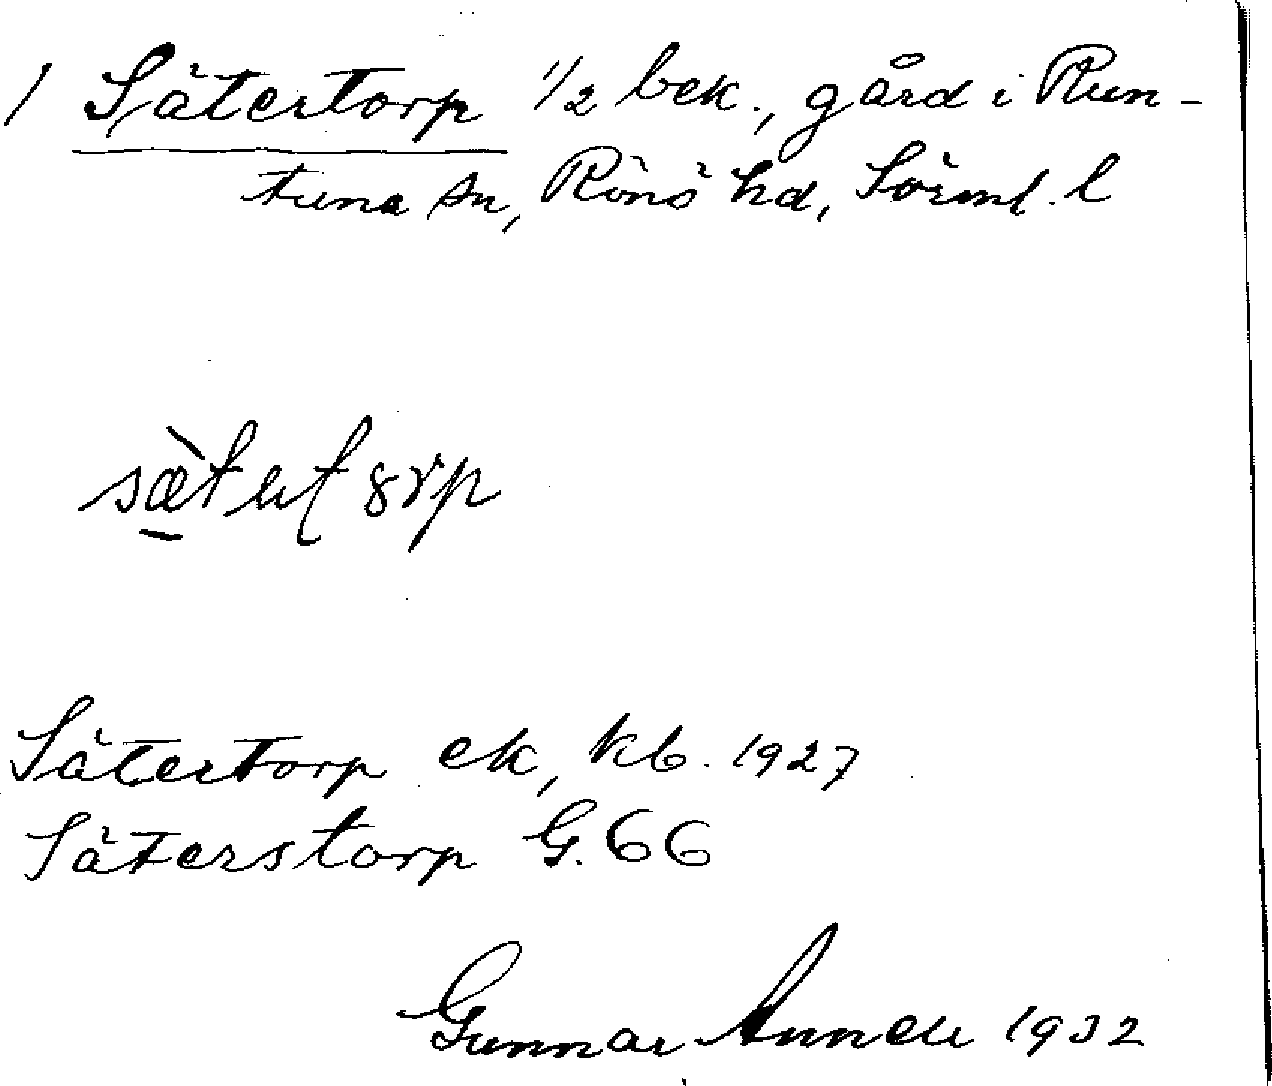 1 Sätertorp 1/2 bek., gård i Run-
tuna sn, Rönö hd, Sörml. l
Sätertorp ek, kb. 1927
Säterstorp G. 66
Gunnar 1932